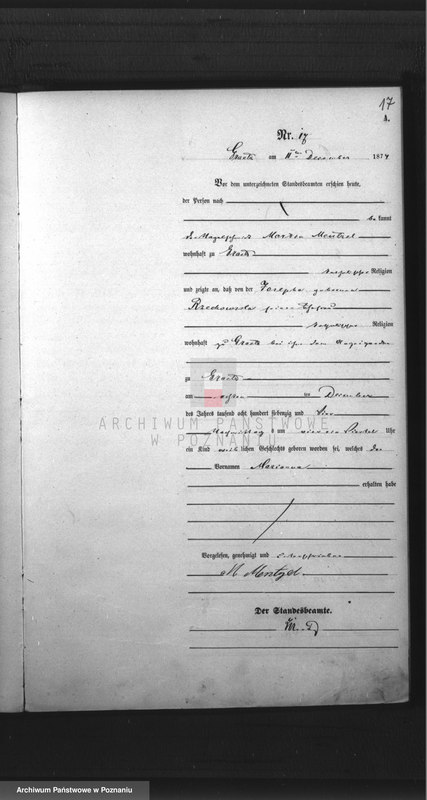 17
A.
Nr. 17
Graetz am 11ten December 1874
Vor dem unterzeichneten Standesbeamten erschien heute,
der Person nach
bekannt
der Nagelschmied Martin Mentzel
wohnhaft zu Graetz
katholischer Religion
und zeigte an, daß von der Josepha geborenen
seiner Ehefrau
katholischer Religion
wohnhaft zu Graetz bei ihm dem Anzeigenden
zu Graetz
am ten December
des Jahres tausend acht hundert siebenzig und vier
Nachmittags um Uhr
ein Kind weiblichen Geschlechts geboren worden sei, welches
Vornamen Marianna
erhalten habe
Vorgelesen, genehmigt und unterschrieben
M Mentzel
Der Standesbeamte.
ARCHIWUM PAŃSTWOWE
W POZNANIU
Archiwum Państwowe w Poznaniu